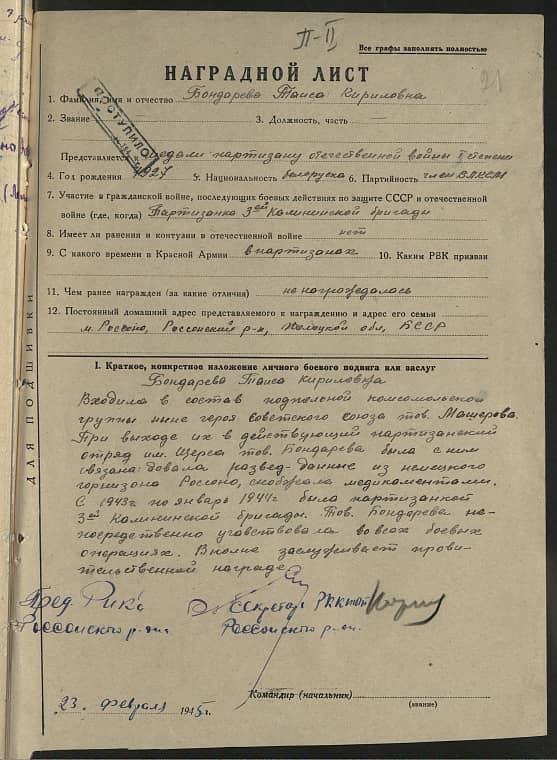 П-II
Все графы заполнять полностью
21
НАГРАДНОЙ ЛИСТ
1. Фамилия, имя и отчество Бондарева Таиса Кириловна
ПОСТУПИЛО
2. Звание — 3. Должность, часть —
Представляется медали партизану отечественной войны II степени
4. Год рождения 1927 5. Национальность белоруска 6. Партийность член ВЛКСМ
7. Участие в гражданской войне, последующих боевых действиях по защите СССР и отечественной
войне (где, когда) Партизанка 3ей Калининской бригады
8. Имеет ли ранения и контузии в отечественной войне нет
9. С какого времени в Красной Армии в партизанах 10. Каким РВК призван
11. Чем ранее награжден (за какие отличия) не награждалась
12. Постоянный домашний адрес представляемого к награждению и адрес его семьи
м. Россоно, Россонский р-н, Полоцкой обл, БССР
ДЛЯ ПОДШИВКИ
I. Краткое, конкретное изложение личного боевого подвига или заслуг
Бондарева Таиса Кириловна
Входила в состав подпольной комсомольской
группы ныне героя Советского союза тов. Машерова.
При выходе их в действующий партизанский
отряд им. Щерса тов. Бондарева была с ним
связана: довала развед-данные из немецкого
горнизона Россоно, снобжала медикоментами.
С 1943г по январь 1944г. была партизанкой
3ей Калининской бригады. Тов. Бондарева не-
посредственно учавствовала во всех боевых
операциях. Вполне заслуживает прови-
тельственной награде
Пред. Рика Секретарь
Россонского р-на Россонского р-на.
Командир (начальник)
(звание)
23 февраля 1945г.